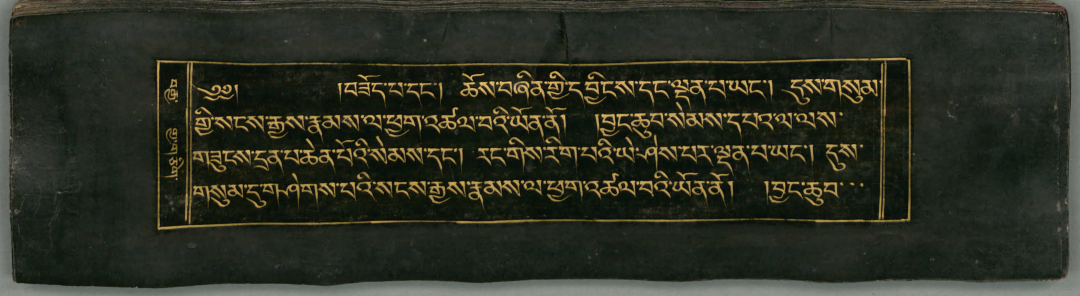 ༄༅། །བཟོད་པ་དང་། ཆོས་བཞིན་གྱི་ད་བྱིངས་དང་ལྡན་པ་ཡང་། དུས་གསུམ་
གྱི་སངས་རྒྱས་རྣམས་ལ་ཕྱག་འཚལ་བའི་ཡོན་ནོ། །བྱང་ཆུབ་སེམས་དཔའ་ལ་ལས་
གཟུངས་དྲན་པ་ཆེན་པོའི་སེམས་དང་། རང་གིས་རིག་པའི་ཡེ་ཤས་པར་ལྡན་པ་ཡང་། དུས་
གསུམ་དུ་གཤེགས་པའི་སངས་རྒྱས་རྣམས་ལ་ཕྱག་འཚལ་བའི་ཡོན་ནོ། །བྱང་ཆུབ་